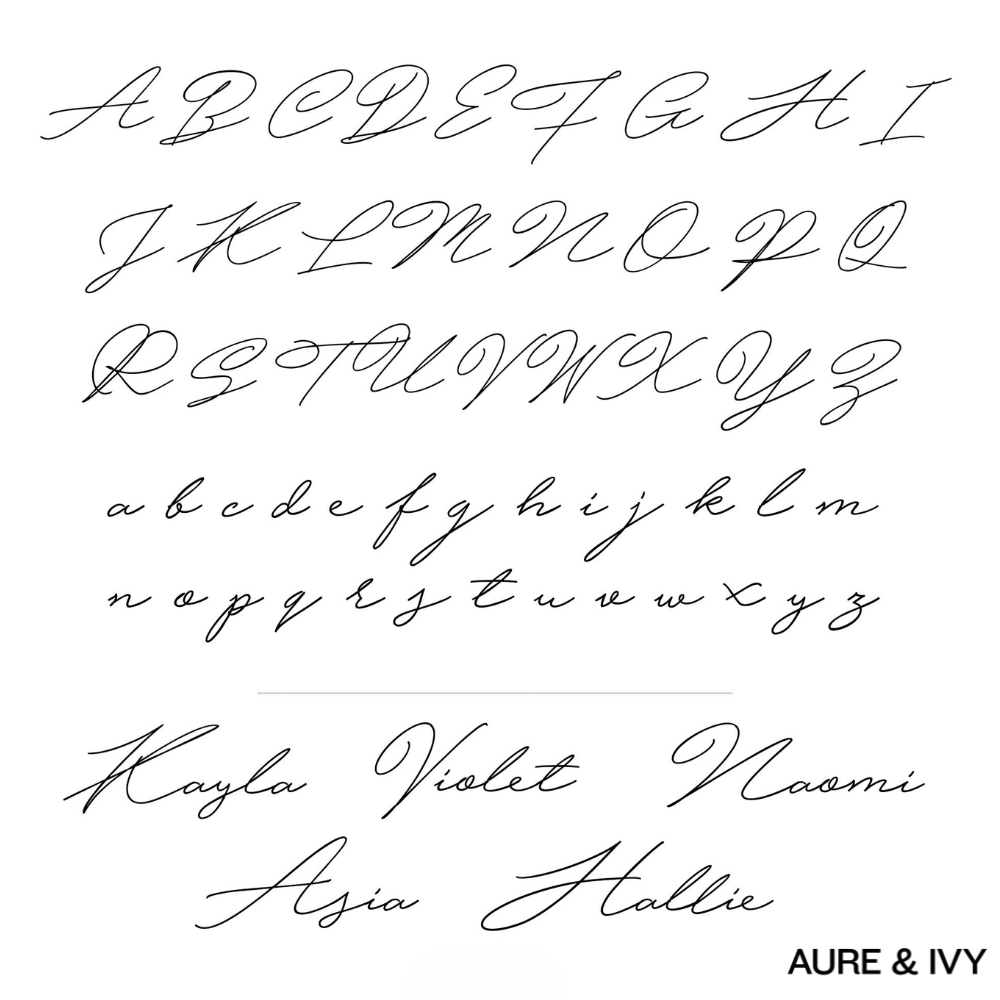 A B C D E F G H I
J K L M N O P Q
R S T U V W X Y Z
a b c d e f g h i j k l m
n o p q r s t u v w x y z
Kayla Violet Naomi
Asia Hallie
AURE & IVY